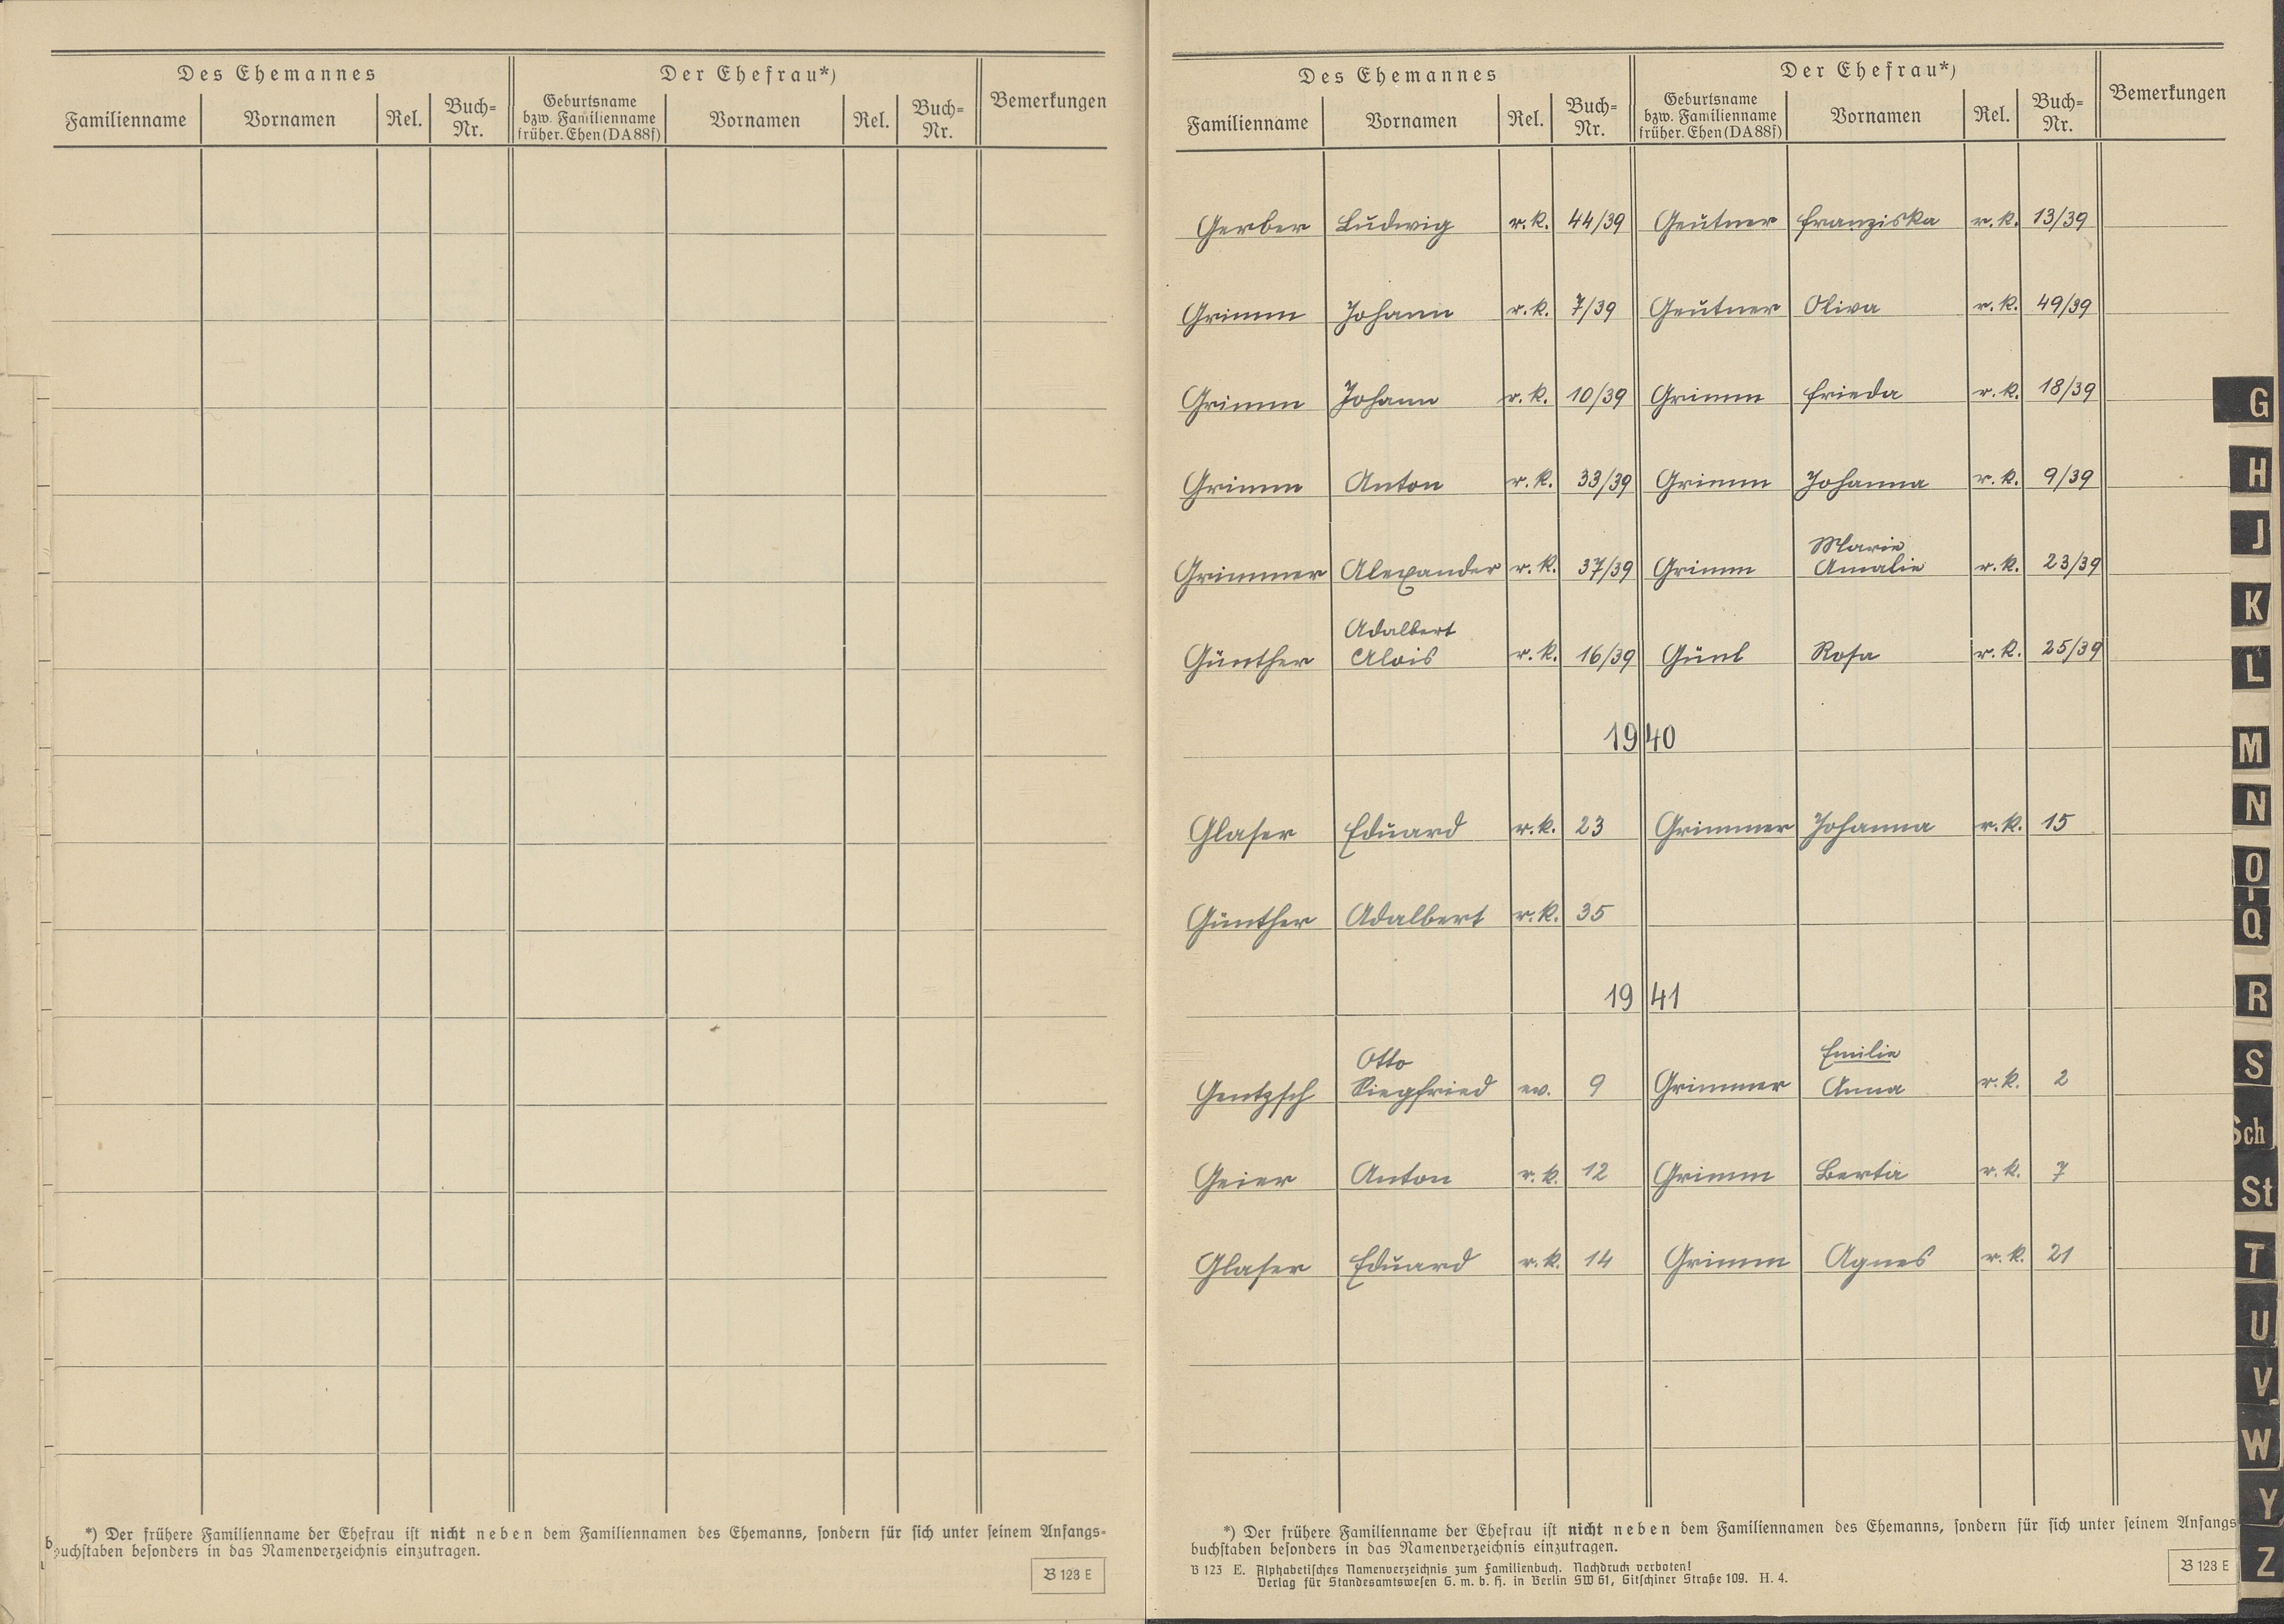 Des Ehemannes Der Ehefrau*)
Familienname Vornamen Rel. Buch-Nr. Geburtsname bzw. Familienname früher. Ehen (DA 88f) Vornamen Rel. Buch-Nr. Bemerkungen
*) Der frühere Familienname der Ehefrau ist nicht neben dem Familiennamen des Ehemanns, sondern für sich unter seinem Anfangs-
buchstaben besonders in das Namenverzeichnis einzutragen.
B 123 E
Des Ehemannes Der Ehefrau*)
Familienname Vornamen Rel. Buch-Nr. Geburtsname bzw. Familienname früher. Ehen (DA 88f) Vornamen Rel. Buch-Nr. Bemerkungen
Gerber Ludwig r.k. 44/39 Geutner Franziska r.k. 13/39
Grimm Johann r.k. 7/39 Geutner Oliva r.k. 49/39
Grimm Johann r.k. 10/39 Grimm Frieda r.k. 18/39
Grimm Anton r.k. 33/39 Grimm Johanna r.k. 9/39
Marie
Grimmer Alexander r.k. 37/39 Grimm Amalie r.k. 23/39
Adalbert
Günther Alois r.k. 16/39 Günl Rosa r.k. 25/39
1940
Glaser Eduard r.k. 23 Grimmer Johanna r.k. 15
Günther Adalbert r.k. 35
1941
Otto Emilie
Gentzsch Siegfried ev. 9 Grimmer Anna r.k. 2
Geier Anton r.k. 12 Grimm Berta r.k. 7
Glaser Eduard r.k. 14 Grimm Agnes r.k. 21
*) Der frühere Familienname der Ehefrau ist nicht neben dem Familiennamen des Ehemanns, sondern für sich unter seinem Anfangs
buchstaben besonders in das Namenverzeichnis einzutragen.
B 123 E. Alphabetisches Namenverzeichnis zum Familienbuch. Nachdruck verboten!
Verlag für Standesamtswesen G. m. b. H. in Berlin SW 61, Gitschiner Straße 109. H. 4.
B 123 E
G
H
J
K
L
M
N
O
Q
R
S
Sch
St
T
U
V
W
Y
Z